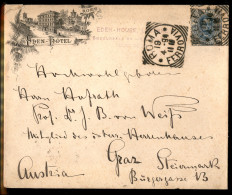 EDEN-HOTEL
ROMA
Hochwohlgeboren
Herrn Hofrath
Prof. Dr. J. B. von Weiß
Mitglied des österr. Herrenhauses
Graz Steiermark
Austria
Bürgergasse 13